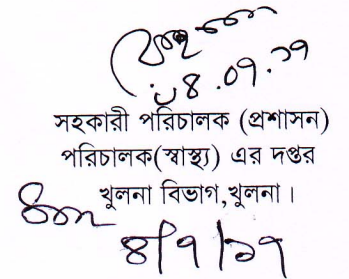 ০৪.০৭.১৭
সহকারী পরিচালক (প্রশাসন)
পরিচালক(স্বাস্থ্য) এর দপ্তর
খুলনা বিভাগ,খুলনা।
৪/৭/১৭